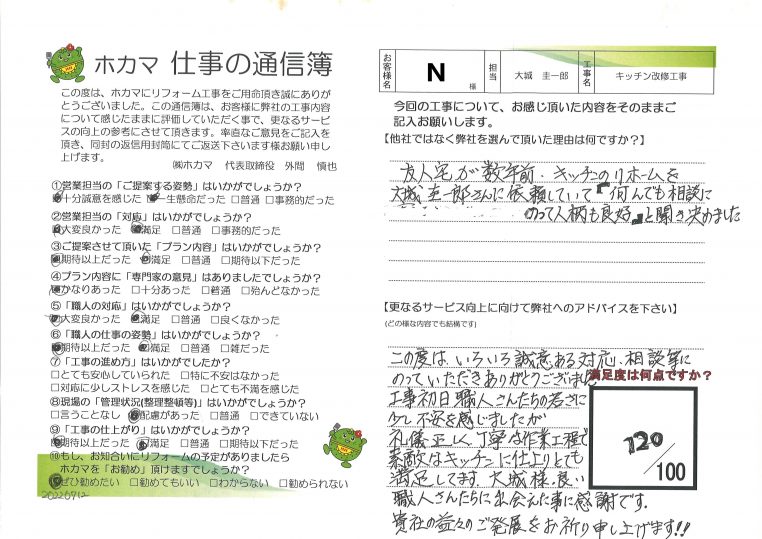 ホカマ 仕事の通信簿
この度は、ホカマにリフォーム工事をご用命頂き誠にありが
とうございました。この通信簿は、お客様に弊社の工事内容
について感じたままに評価していただく事で、更なるサービ
スの向上の参考にさせて頂きます。率直なご意見をご記入を
頂き、同封の返信用封筒にてご返送下さいます様お願い申し
上げます。
㈱ホカマ 代表取締役 外間 慎也
①営業担当の「ご提案する姿勢」はいかがでしょうか?
十分誠意を感じた 一生懸命だった □普通 □事務的だった
②営業担当の「対応」はいかがでしょうか?
大変良かった 満足 □普通 □事務的だった
③ご提案させて頂いた「プラン内容」はいかがでしょうか?
期待以上だった 満足 □普通 □期待以下だった
④プラン内容に「専門家の意見」はありましたでしょうか?
かなりあった □十分あった □普通 □殆んどなかった
⑤「職人の対応」はいかがでしょうか?
大変良かった 満足 □普通 □良くなかった
⑥「職人の仕事の姿勢」はいかがでしょうか?
期待以上だった 満足 □普通 □雑だった
⑦「工事の進め方」はいかがでしたか?
□とても安心していられた □特に不安はなかった
□対応に少しストレスを感じた □とても不満を感じた
⑧現場の「管理状況(整理整頓等)」はいかがでしょうか?
□言うことなし 配慮があった □普通 □できていない
⑨「工事の仕上がり」はいかがでしょうか?
期待以上だった 満足 □普通 □期待以下だった
⑩もし、お知合いにリフォームの予定がありましたら
ホカマを「お勧め」頂けますでしょうか?
ぜひ勧めたい □勧めてもいい □わからない □勧められない
20220712
お客様名 N 様 担当 大城 圭一郎 工事名 キッチン改修工事
今回の工事について、お感じ頂いた内容をそのままご
記入お願いします。
【他社ではなく弊社を選んで頂いた理由は何ですか?】
友人宅が数年前、キッチンのリホームを
大城圭一郎さんに依頼していて『何んでも相談に
のって人柄も良好』と聞き決めました
【更なるサービス向上に向けて弊社へのアドバイスを下さい】
(どの様な内容でも結構です)
この度は いろいろ誠意ある対応、相談等に
のっていただきありがとうございました
満足度は何点ですか?
工事初日職人さんたちの若さに
少し不安を感じましたが
礼儀正しく丁寧な作業工程で
素敵なキッチンに仕上りとても
満足してます。大城様、良い
職人さんたちに出会えた事に感謝です。
貴社の益々のご発展をお祈り申し上げます!!
120/100